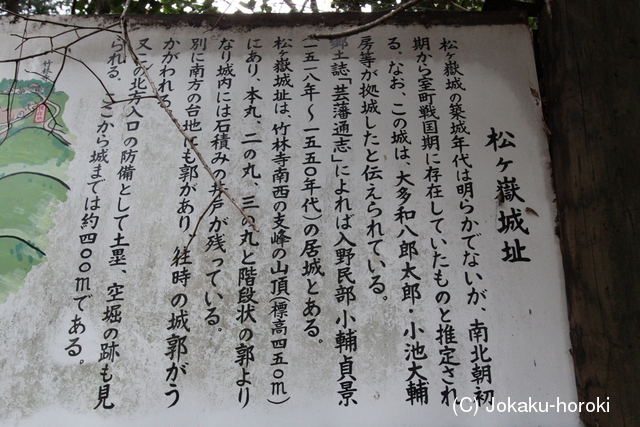 松ヶ嶽城址
松ヶ嶽城の築城年代は明らかでないが、南北朝初
期から室町戦国期に存在していたものと推定され
る。なお、この城は、大多和八郎太郎・小池大輔
房等が拠城したと伝えられている。
郷土誌「芸藩通志」によれば入野民部小輔貞景
(一五一八年〜一五五〇年代)の居城とある。
松ヶ嶽城址は、竹林寺南西の支峰の山頂(標高四五〇m)
にあり、本丸、二の丸、三の丸と階段状の郭より
なり城内には石積みの井戸が残っている。
別に南方の台地にも郭があり、往時の城郭がう
かがわれる。
又この北方入口の防備として土塁、空堀の跡も見
られる。ここから城までは約四〇〇mである。
竹林寺
(C) Jokaku-horoki